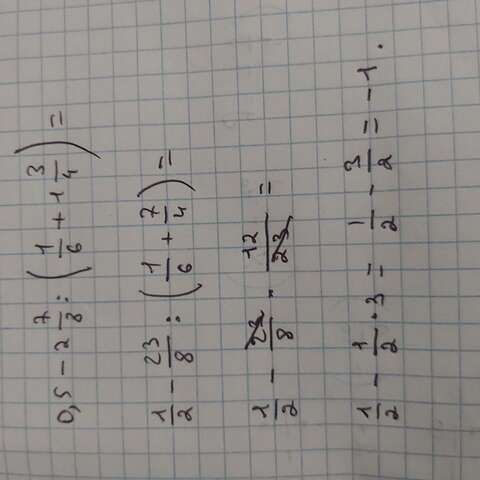 0,5 - 2 7/8 : (1/6 + 1 3/4) =
1/2 - 23/8 : (1/6 + 7/4) =
1/2 - 23/8 · 12/23 =
1/2 - 1/2 · 3 = 1/2 - 3/2 = -1.